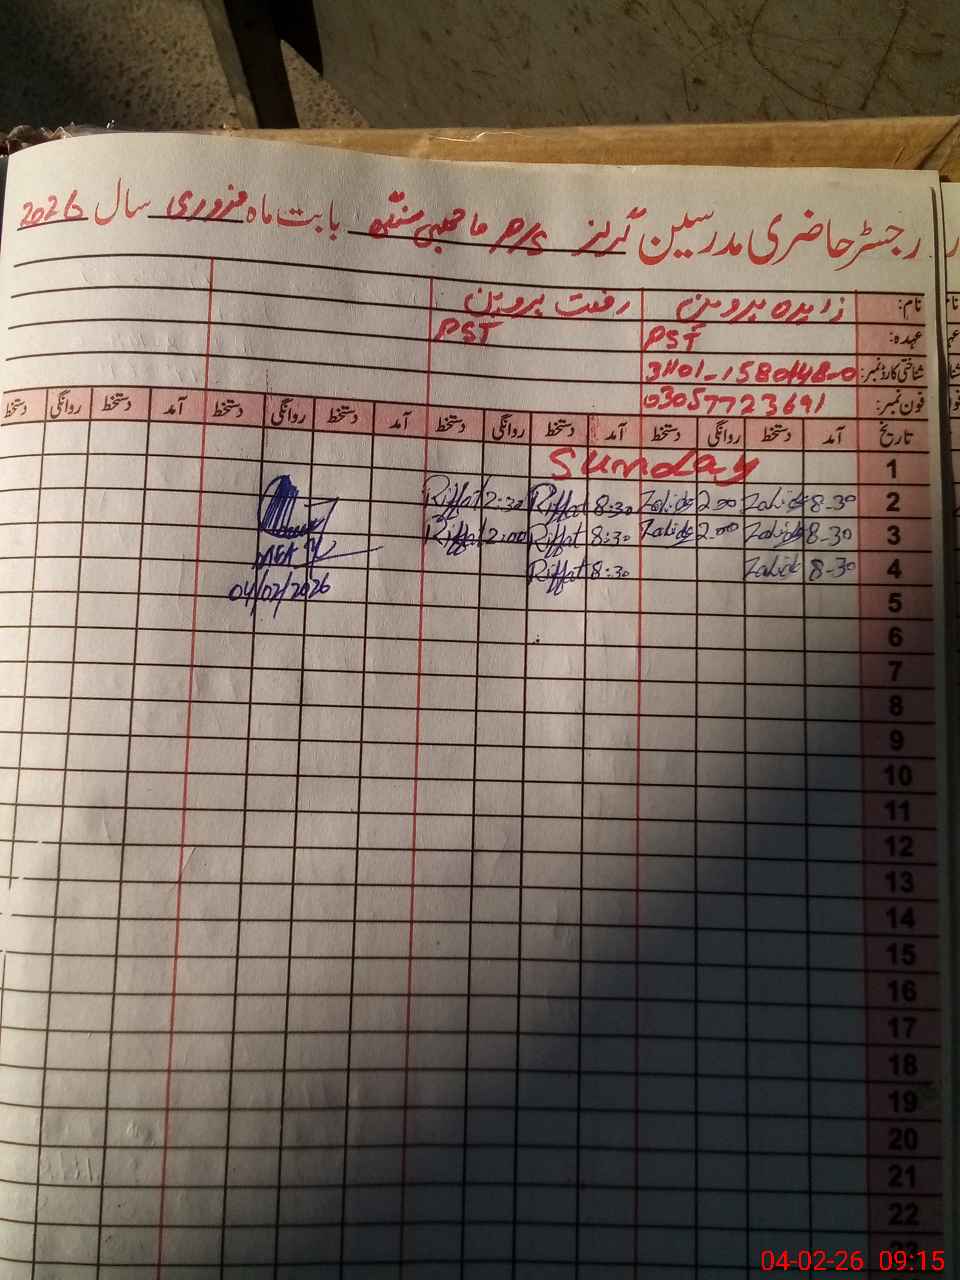 رجسٹر حاضری مدرسین گرلز بابت ماہ فروری سال 2026
نام: زاہدہ پروین رفعت پروین
عہدہ: PST PST
شناختی کارڈ نمبر:
فون نمبر: 03057723691
تاریخ آمد دستخط روانگی دستخط آمد دستخط روانگی دستخط آمد دستخط روانگی دستخط آمد دستخط روانگی دستخط
1 Sunday
2 8-30 Zahida 2.00 Zahida 8:30 Riffat 2:30 Riffat
3 8-30 Zahida 2.00 Zahida 8:30 Riffat 2:00 Riffat
4 8-30 Zahida 8:30 Riffat
04/02/2026
5
6
7
8
9
10
11
12
13
14
15
16
17
18
19
20
21
22
23
04-02-26 09:15